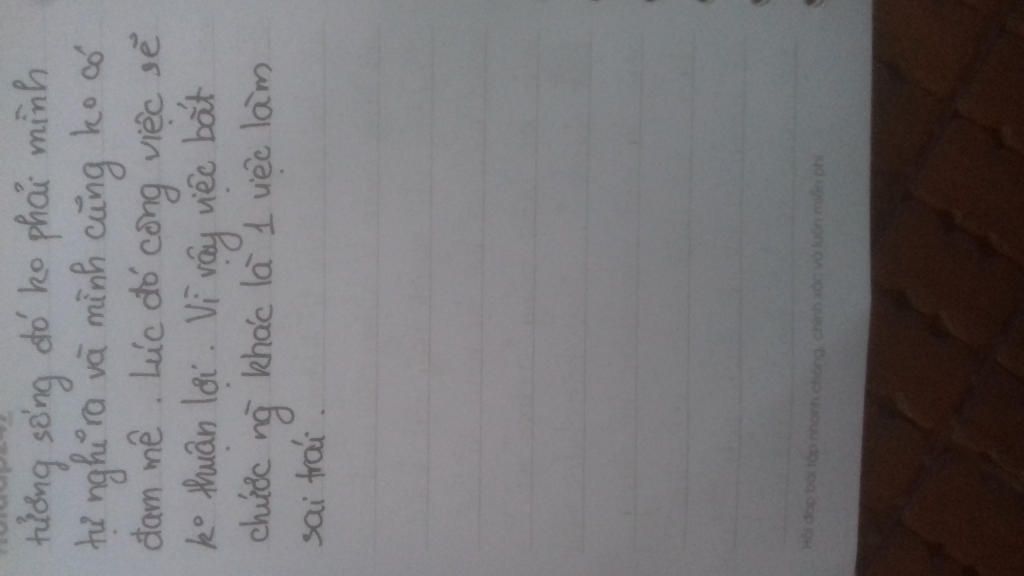 tưởng sống đó ko phải mình
tự nghĩ ra và mình cũng ko có
đam mê. Lúc đó công việc sẽ
ko thuận lợi. Vì vậy việc bắt
chước ng~ khác là 1 việc làm
sai trái.
Hỏi đáp bài tập nhanh chóng, chính xác và luôn miễn phí